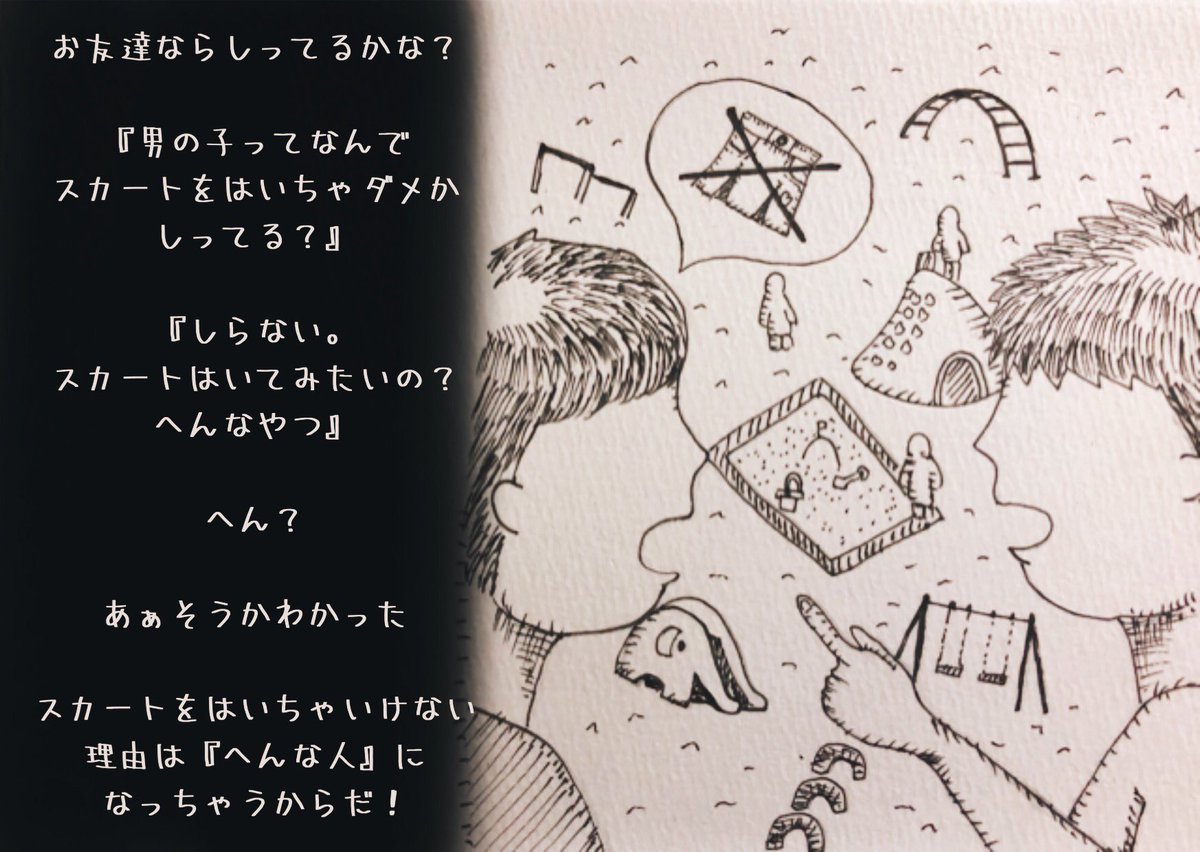 お友達ならしってるかな？
『男の子ってなんで
スカートをはいちゃダメか
しってる？』
『しらない。
スカートはいてみたいの？
へんなやつ』
へん？
あぁそうかわかった
スカートをはいちゃいけない
理由は『へんな人』に
なっちゃうからだ！